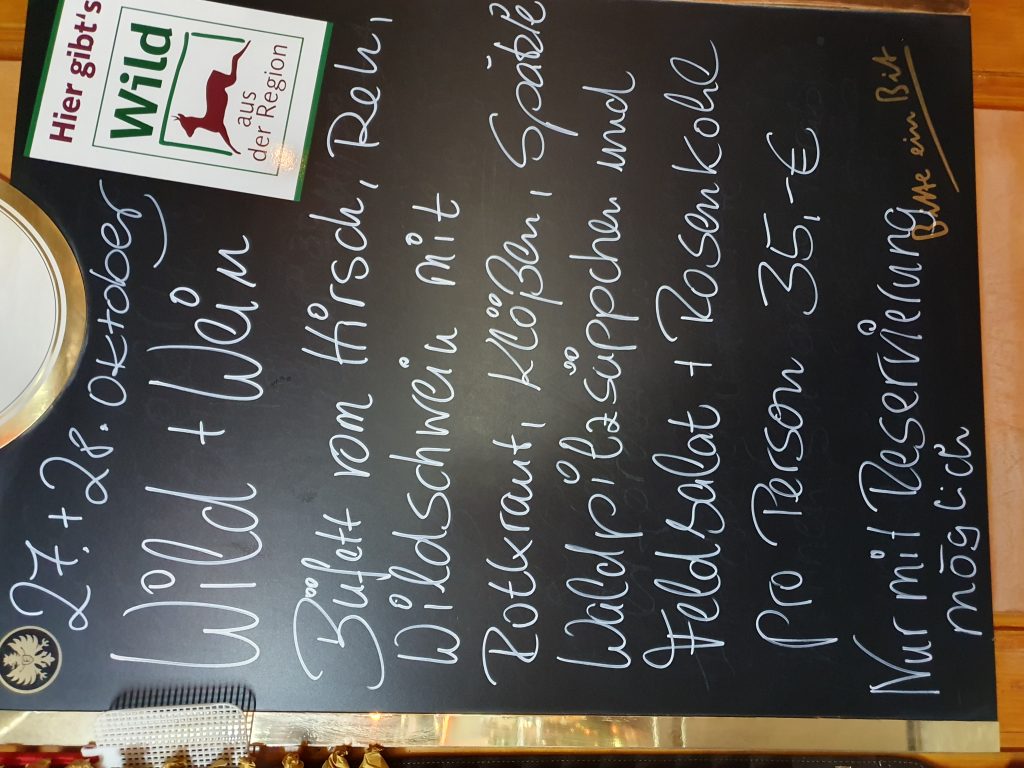 27. + 28. Oktober
Wild + Wein
Hier gibt's
Wild
aus
der Region
Büfett vom Hirsch, Reh,
Wildschwein mit
Rothkraut, Klößen, Spätzle
Waldpilzsüppchen und
Feldsalat + Rosenkohl
Pro Person 35,-€
Nur mit Reservierung
möglich
Bitte ein Bit